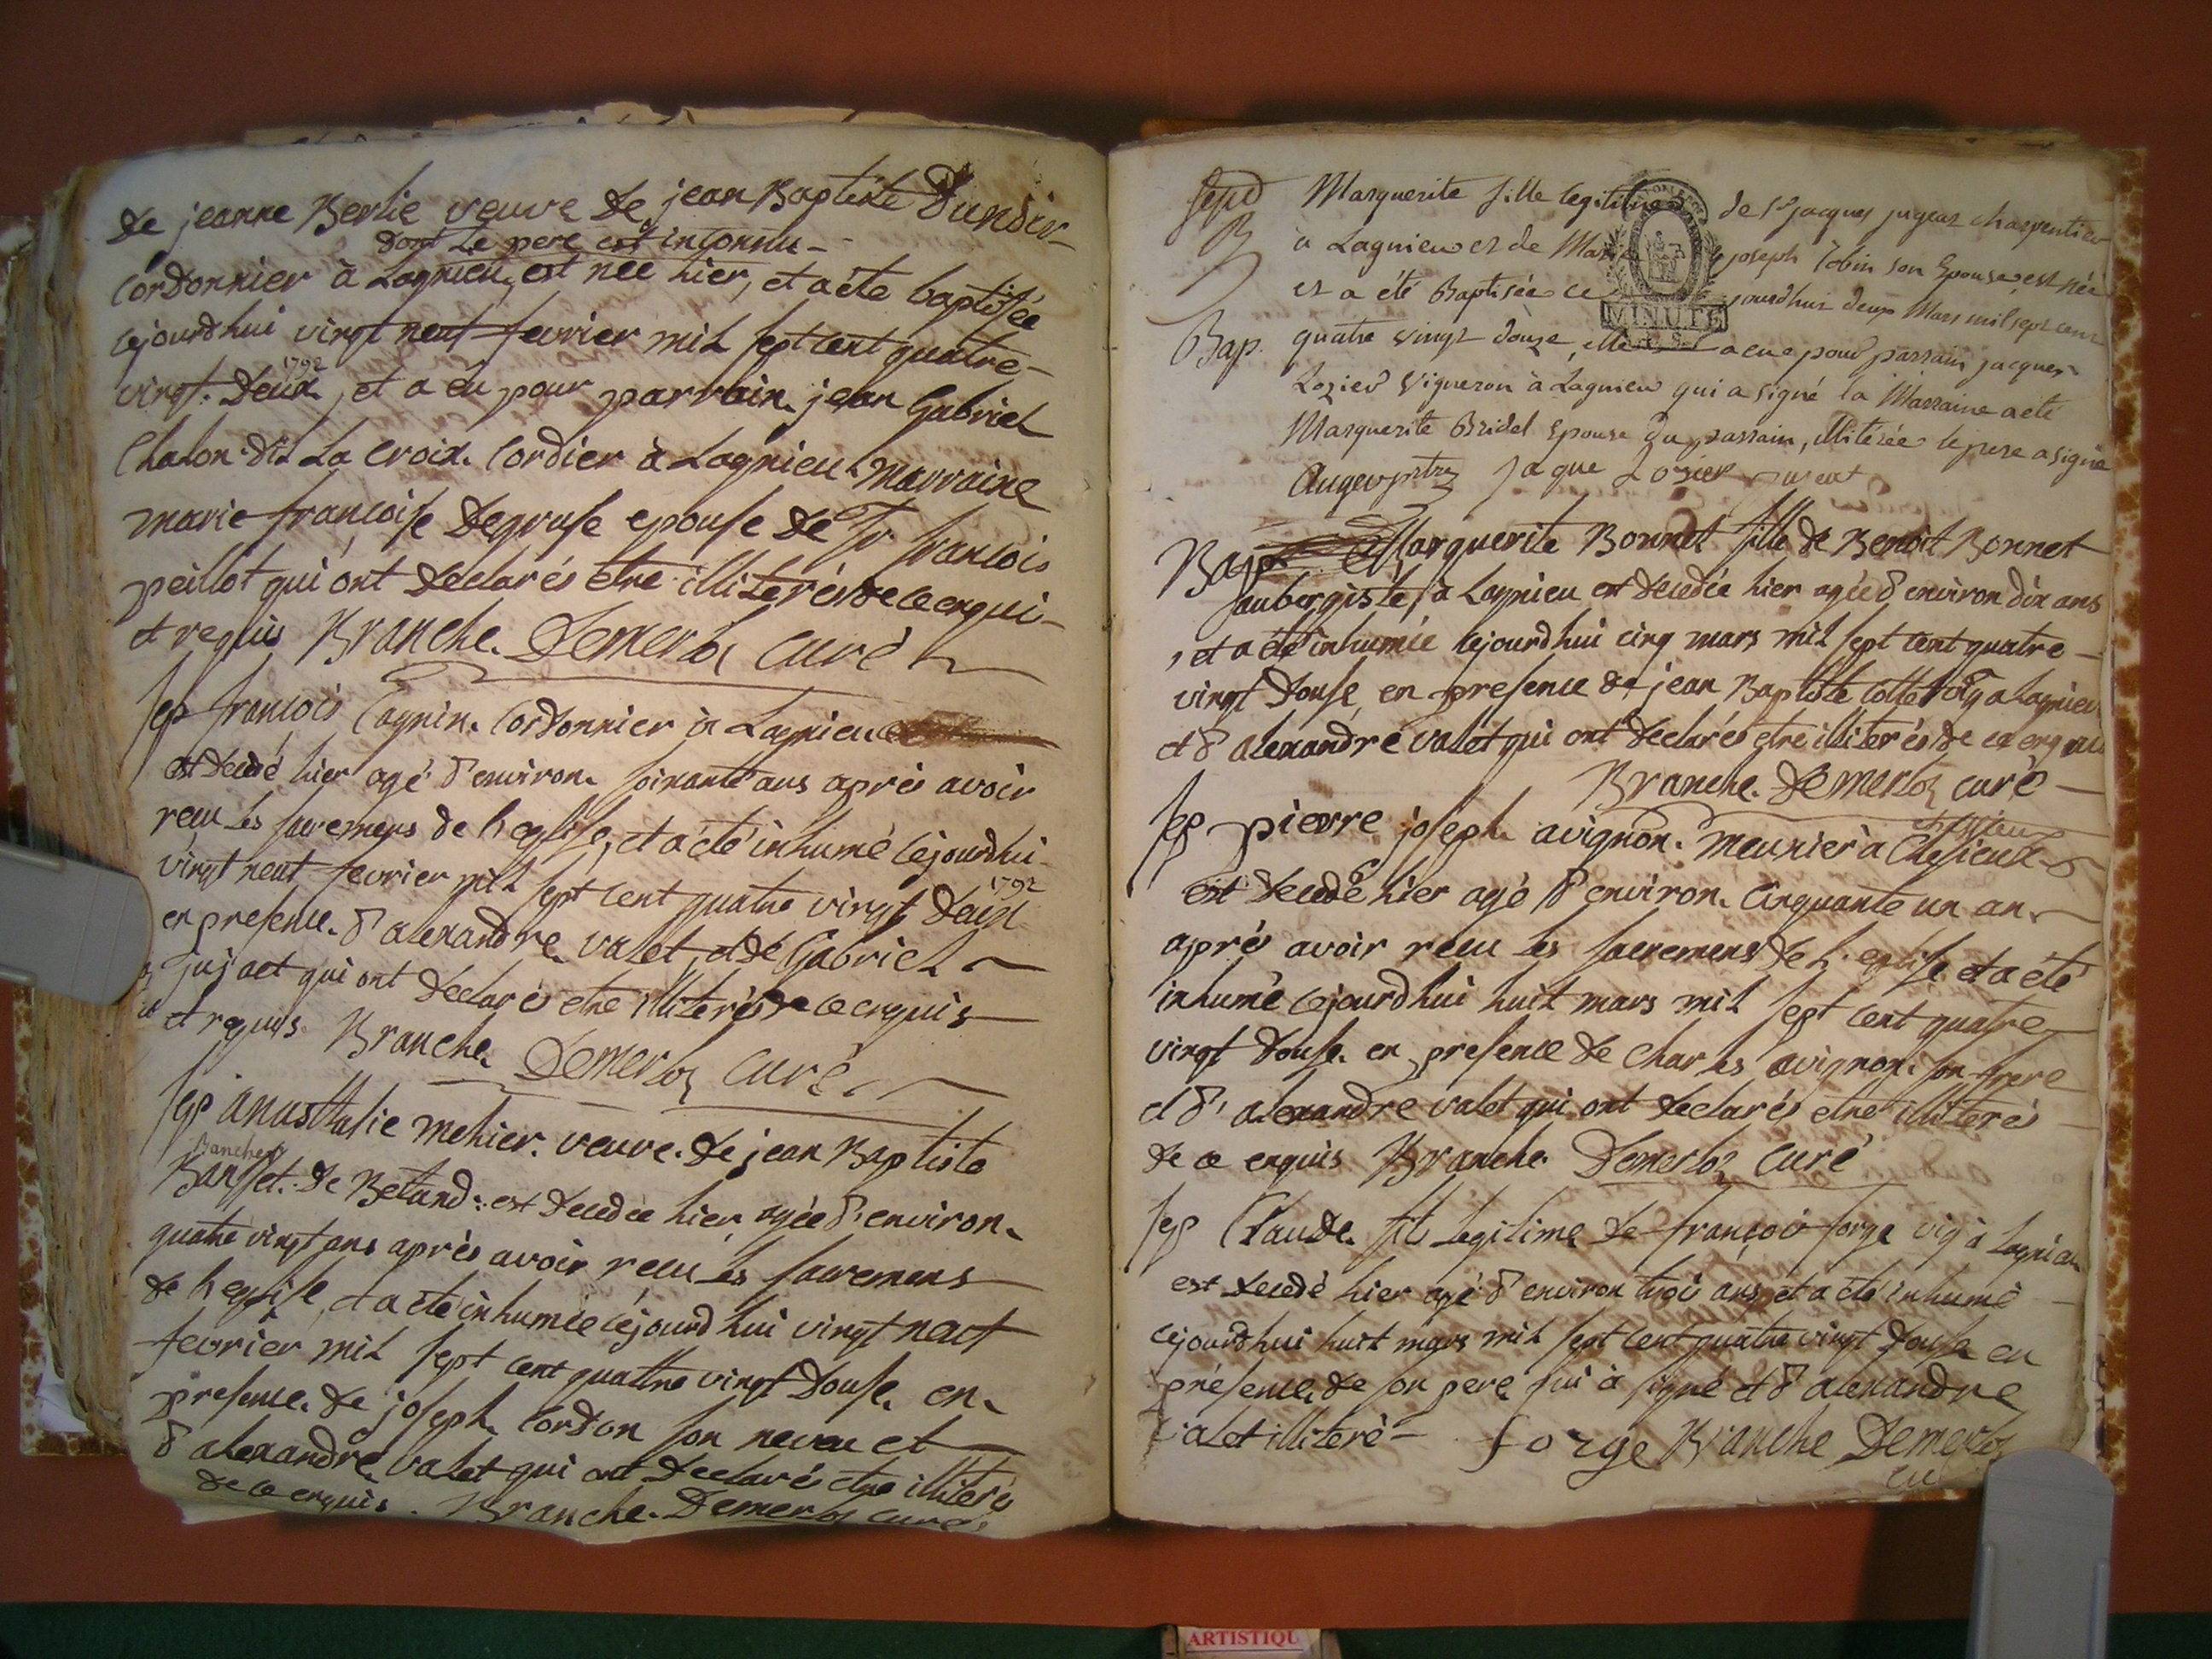 de jeanne Berlie veuve de jean Baptiste Dundin
dont Le pere est inconnu
Cordonnier à Lagnieu, est née hier, et a été baptisée
cejourdhui vingt neuf fevrier mil sept cent quatre
1792
vingt. Deux, et a eu pour parrain. jean Gabriel
Chalon. dit La Croix. Cordier à Lagnieu. Marraine
marie françoise Degruse epouse de Sr. françois
peillot qui ont declarés etre illiterés de ce enqui
et requis Branche. Demerloz curé
sep françois Cagnin. Cordonnier à Lagnieu
est decedé hier agé d'environ. soixante ans aprés avoir
recu les sacremens de l'eglise, et a été inhumé cejourdhui
vingt neuf fevrier mil sept cent quatre vingt Deux
1792
en presence. d'alexandre valet, et de Gabriel
jujaet qui ont declarés etre illiterés de ce enquis
et requis. Branche. Demerloz curé
sep anasthasie mehier. veuve. de jean Baptiste
Banchet
Bansset. de Betand: est decedée hier agée d'environ.
quatre vingt ans aprés avoir recu les sacremens
de l'eglise, et a été inhumée cejourdhui vingt neuf
fevrier mil sept cent quattre vingt Douse. en.
presence. de joseph. Cordon son neveu et
d'alexandre valet qui ont declarés etre illiteré
de ce enquis. Branche. Demerloz curé
sepd Marguerite fille legitime de Sr jacques jugeat charpentier
B à Lagnieu et de Marie joseph Tobin son Epouse, est née
et a été Baptisée ce jourdhui deux Mars mil sept cent
MINUTE
Bap. quatre vingt douze, elle a eue pour parrain jacques
Lozier Vigneron à Lagnieu qui a signé la Marraine a été
Marguerite Bridel Epouse du parrain, illiterée le pere a signé
Auger ptre jaque Losier jujeat
Bap Marguerite Bonnet fille de Benoit Bonnet
aubergiste, à Lagnieu est decedée hier agée d'environ dix ans
, et a été inhumée cejourdhui cinq mars mil sept cent quatre
vingt Douse, en presence de jean Baptiste Collet vig a Lagnieu
et d'alexandre valet qui ont declarés etre illiterés de ce enquis
Branche. Demerloz curé
sep pierre joseph avignon. meunier à Chesieux
est decedé hier agé d'environ. Cinquante un an.
aprés avoir recu les sacremens de l'eglise, et a été
inhumé cejourdhui huit mars mil sept cent quatre
vingt Douse. en presence de charles avignon. son frere
et d'alexandre valet qui ont declarés etre illiterés
de ce enquis Branche. Demerloz curé
sep Claude. fils legitime de françois forge vig à Lagnieu
est decedé hier agé d'environ trois ans, et a été inhumé
cejourdhui huit mars mil sept cent quatre vingt Douse en
présence. de son pere qui à signé et d'alexandre
valet illiteré forge Branche Demerloz
cu
ARTISTIQU